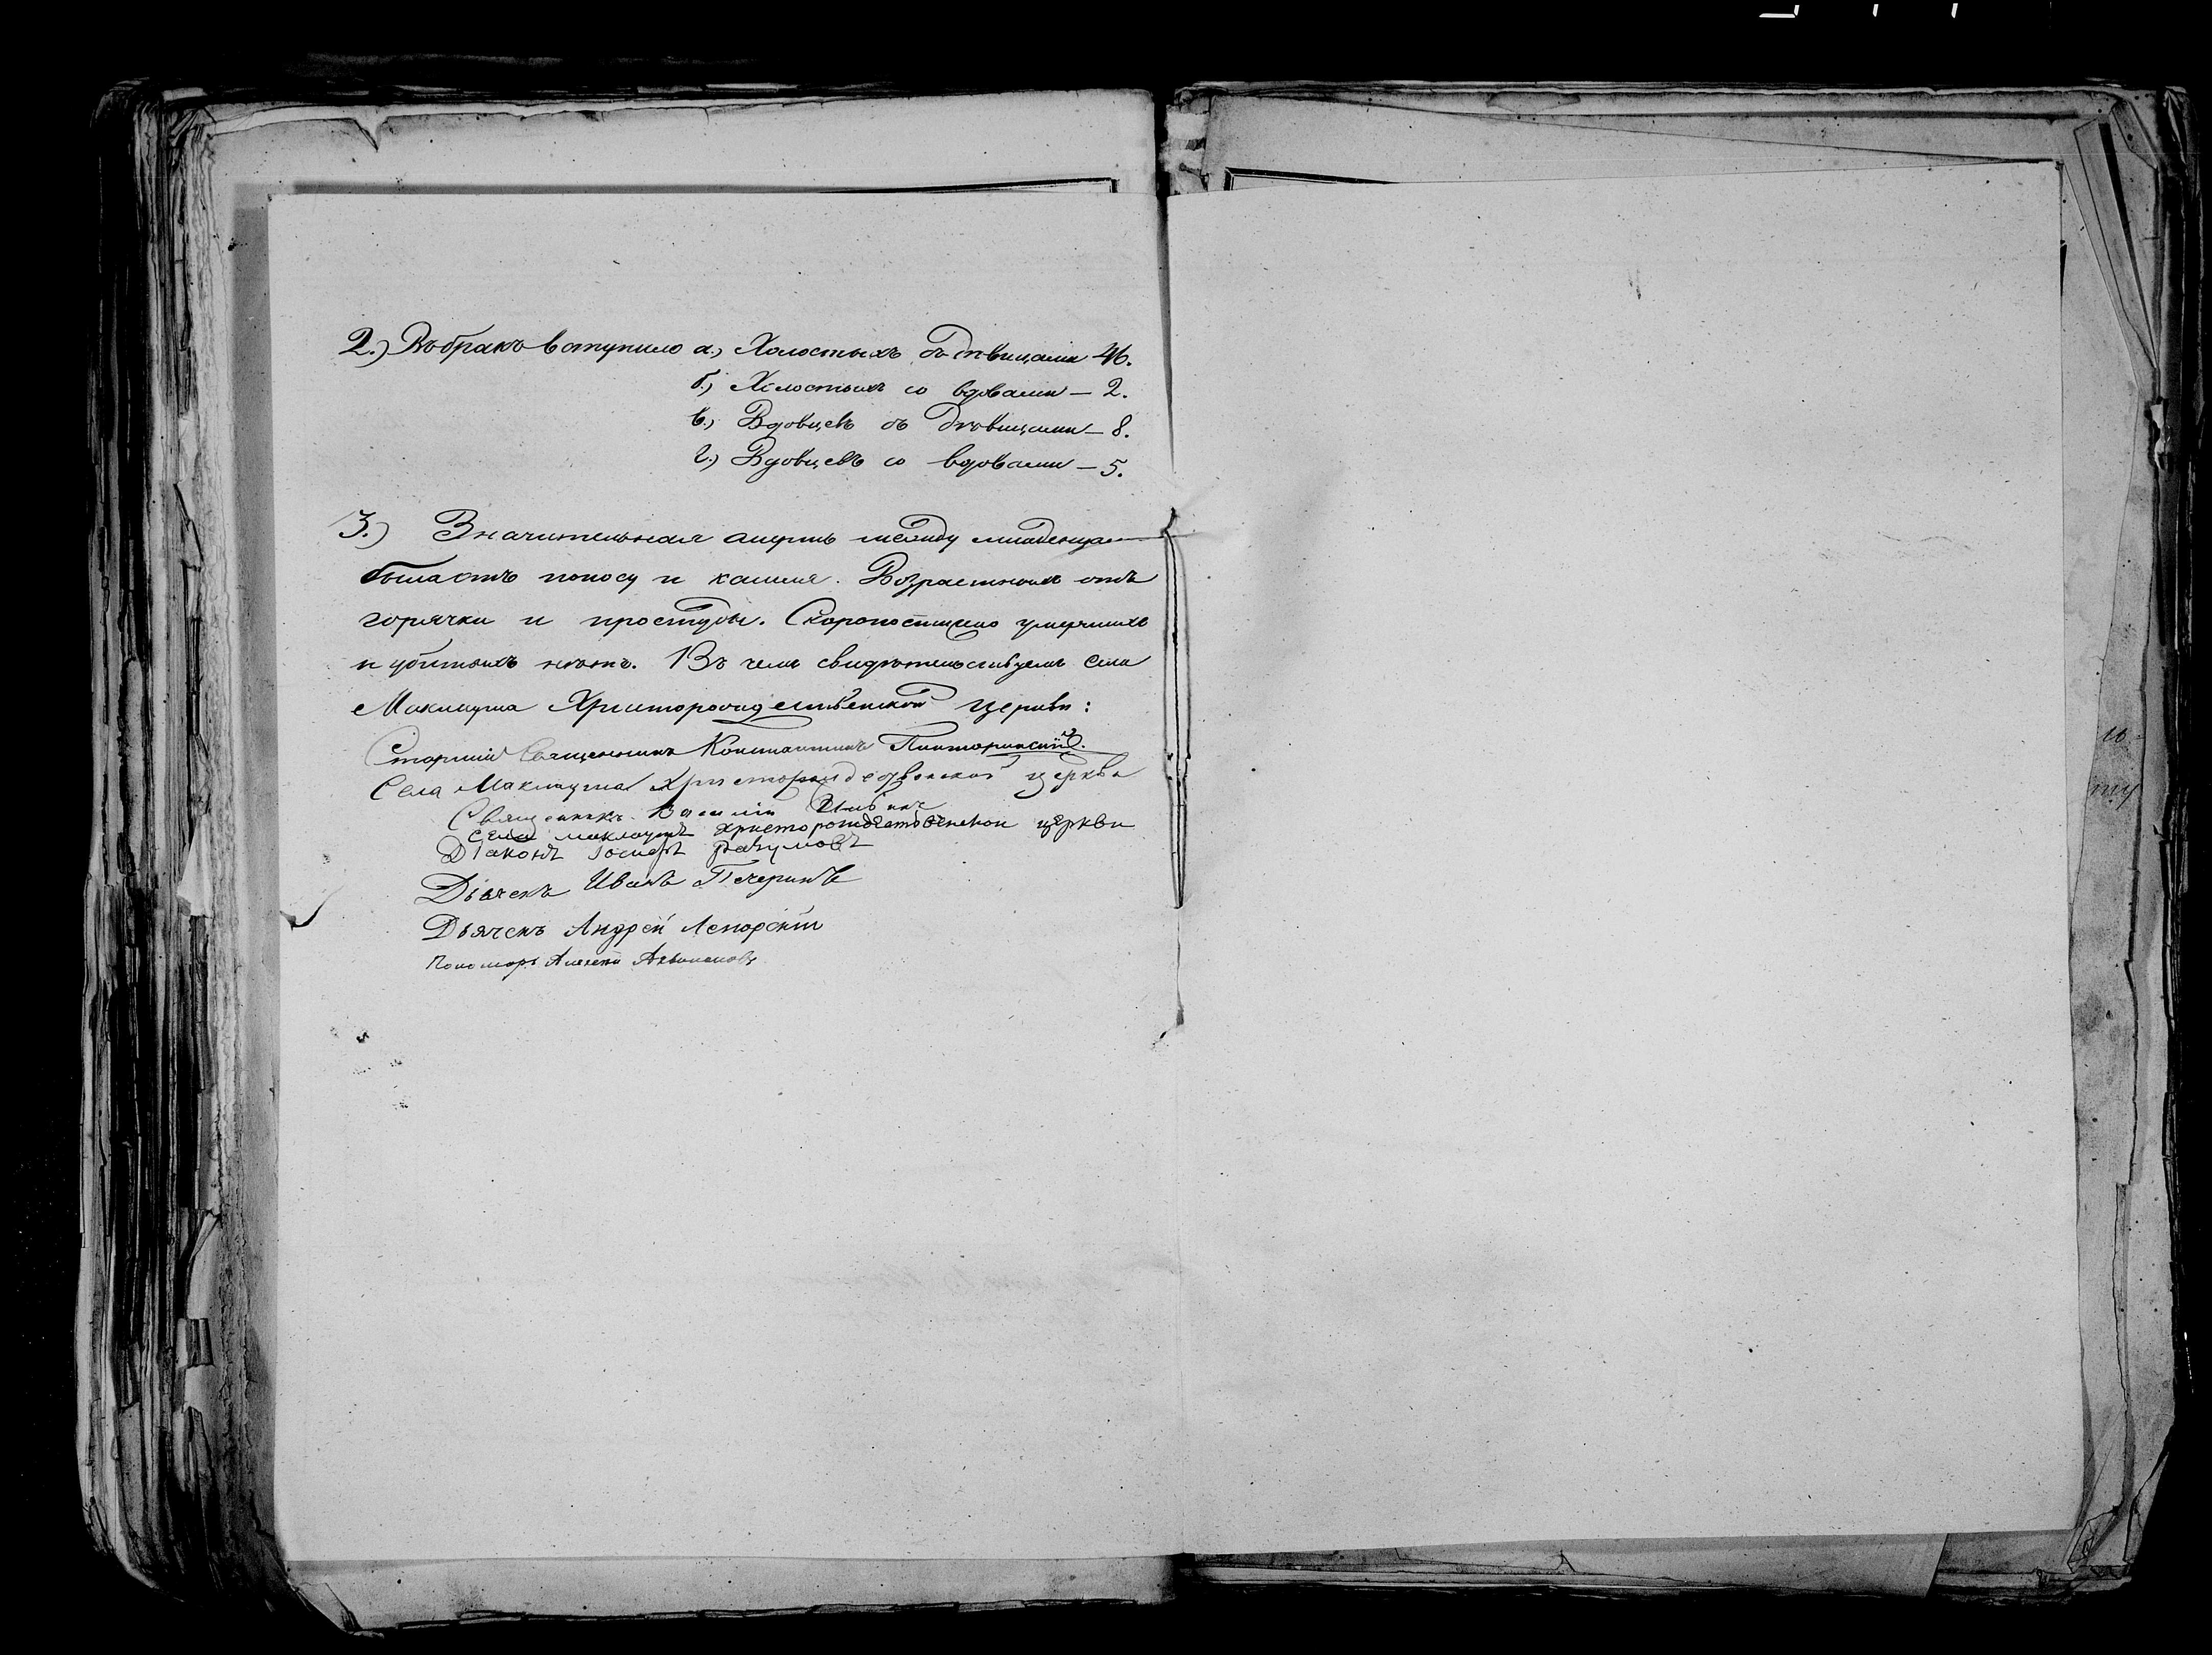 2.) Въ бракъ вступило а.) Холостыхъ съ дѣвицами 46.
б.) Холостыхъ со вдовами — 2.
в.) Вдовцевъ съ дѣвицами — 8.
г.) Вдовцевъ со вдовами — 5.
3.) Значительная смерть между младенца
была отъ поносу и кашля. Возрастныхъ отъ
горячки и простуды. Скоропостижно умершихъ
и убитыхъ нѣтъ. Въ чемъ свидѣтельствуемъ села
Маклауша Христорождественской церкви:
Старшій Священникъ Константинъ
Села Маклауша Христорождественской церкви
Священникъ Василій
села маклаушъ христорождественской церкви
Діаконъ Іосифъ Разумовъ
Дьячекъ Иванъ Печеринъ
Дьячекъ Андрей Лепорскій
Пономарь Алексѣй
ю
ту